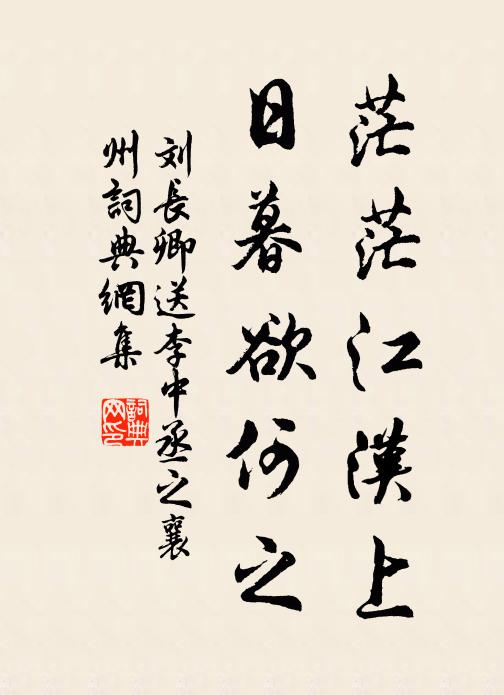 茫茫江漢上
日暮欲何之
刘長卿送李中丞之襄
州詞典網集
詞典
网印